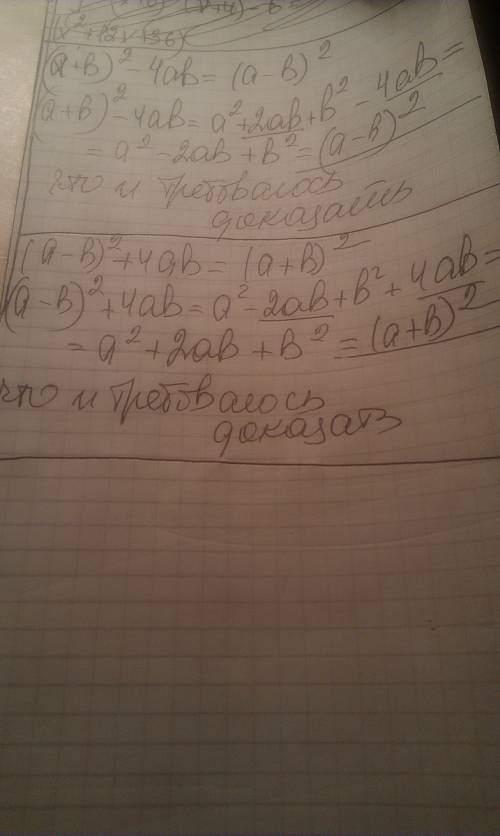 (x²+12x+36)
(a+b)²-4ab=(a-b)²
(a+b)²-4ab=a²+2ab+b²-4ab=
=a²-2ab+b²=(a-b)²
что и требовалось
доказать
(a-b)²+4ab=(a+b)²
(a-b)²+4ab=a²-2ab+b²+4ab=
=a²+2ab+b²=(a+b)²
что и требовалось
доказать